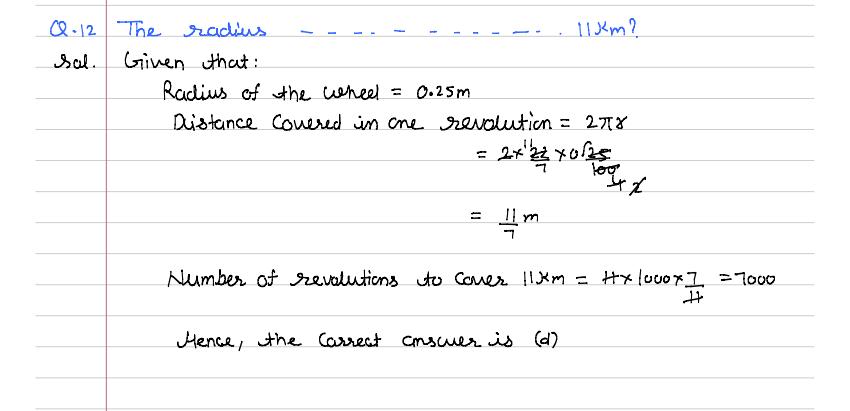 Q.12 The radius - - - . - - - - - - - . 11Km?
Sol. Given that:
Radius of the wheel = 0.25m
Distance Covered in one revolution = 2πr
= 2 × 22/7 × 0.25/100
11
4 2
= 11/7 m
Number of revolutions to cover 11Km = 11 × 1000 × 7/11 = 7000
Hence, the correct answer is (d)